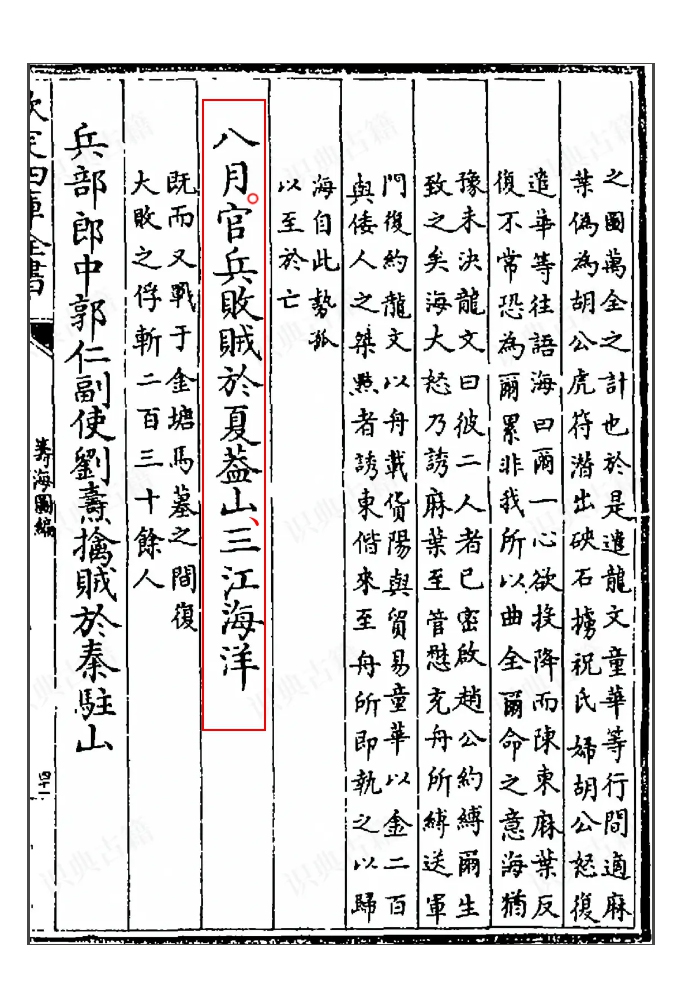 之圖萬全之計也於是遣龍文童華等行間適麻
葉偽為胡公虎符潛出硤石擄祝氏婦胡公怒復
遣華等往語海曰爾一心欲投降而陳東麻葉反
復不常恐為爾累非我所以曲全爾命之意海猶
豫未決龍文曰彼二人者已密啟趙公約縛爾生
致之矣海大怒乃誘麻葉至管懋充舟所縛送軍
門復約龍文以舟載貨陽與貿易童華以金二百
與倭人之桀黠者誘東偕來至舟所即執之以歸
海自此勢孤
以至於亡
八月。官兵敗賊於夏葢山、三江海洋
既而又戰于金塘馬墓之間復
大敗之俘斬二百三十餘人
兵部郎中郭仁副使劉燾擒賊於秦駐山
欽定四庫全書
籌海圖編
四十一
识典古籍